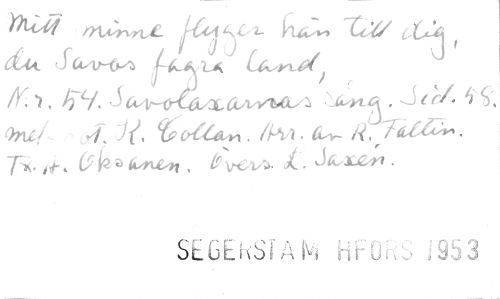 Mitt minne flyger hän till dig,
du Savos fagra land,
N.r. 54. Savolaxarnas sång. Sid. 58.
mel. not. K. Collan. Arr. av R. Faltin.
Tx. A. Oksanen. Övers. L. Saxén.
SEGERSTAM HFORS 1953